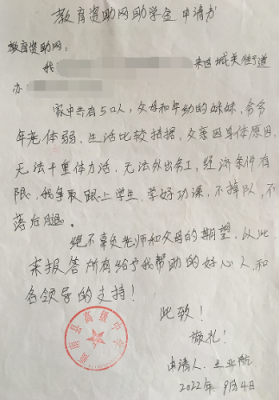 教育资助网助学金申请书
教育资助网：
我
来自城关镇
办
家中共有5口人，父母和年幼的妹妹，爷爷
年老体弱。生活比较拮据，父亲因身体原因
无法干重体力活。无法外出务工，经济条件有
限，我争取跟上学生，学好功课，不掉队，不
落后腿。
绝不辜负老师和父母的期望。以此
来报答所有给予我帮助的好心人和
各领导的支持！
此致！
敬礼！
申请人：王业
2022年9月4日
县高级中学